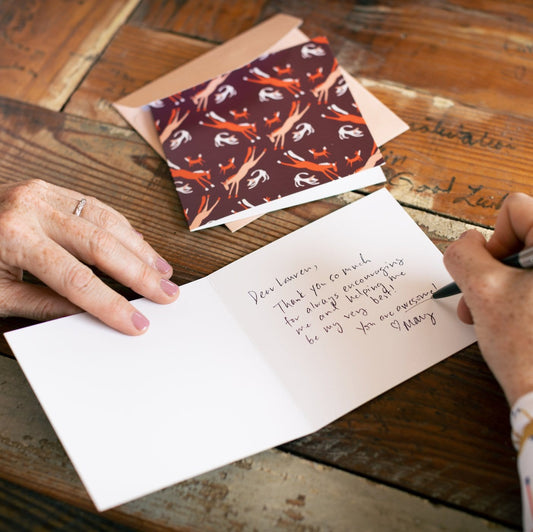 Dear Lauren,
Thank you so much
for always encouraging
me and helping me
be my very best!
You are awesome!
♡ Mary
Motivation
Good